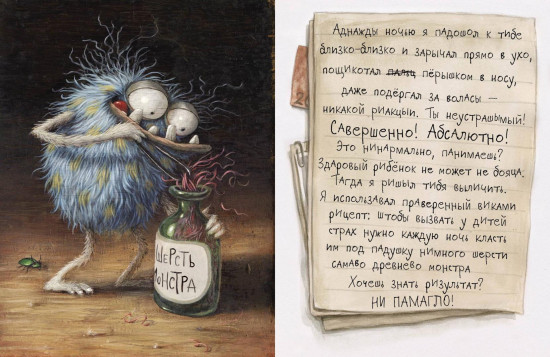 ШЕРСТЬ
МОНСТРА
Аднажды ночью я падошол к тибе
близко-близко и зарычал прямо в ухо,
пощикотал пёрышком в носу,
даже подёргал за воласы –
никакой риакцыи. Ты неустрашымый!
САвершенно! АбсАлютно!
Это нинармально, панимаешь?
Здаровый рибёнок не может не бояца.
Тагда я ришыл тибя выличить.
Я использавал праверенный виками
рицепт: штобы вызвать у дитей
страх нужно каждую ночь класть
им под падушку нимного шерсти
самаво древнево монстра
Хочешь знать ризультат?
НИ ПАМАГЛО!